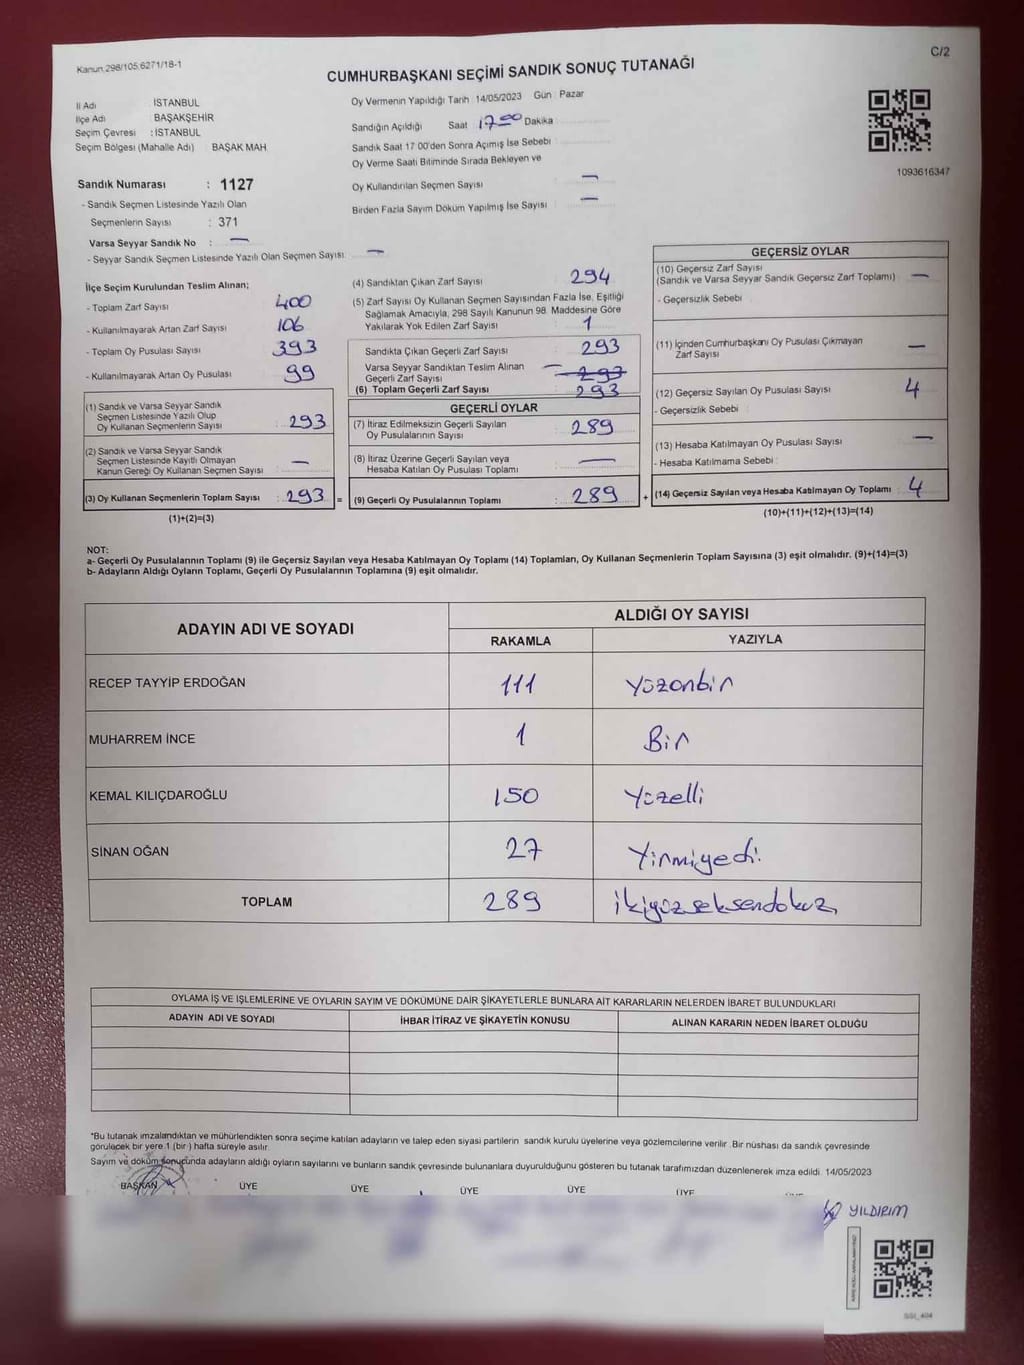 Kanun 298/105.6271/18-1
C/2
CUMHURBAŞKANI SEÇİMİ SANDIK SONUÇ TUTANAĞI
İl Adı İSTANBUL
İlçe Adı : BAŞAKŞEHİR
Seçim Çevresi : İSTANBUL
Seçim Bölgesi (Mahalle Adı) BAŞAK MAH
Sandık Numarası : 1127
- Sandık Seçmen Listesinde Yazılı Olan
Seçmenlerin Sayısı : 371
Varsa Seyyar Sandık No : —
- Seyyar Sandık Seçmen Listesinde Yazılı Olan Seçmen Sayısı: —
Oy Vermenin Yapıldığı Tarih 14/05/2023 Gün : Pazar
Sandığın Açıldığı Saat 17:00 Dakika
Sandık Saat 17:00'den Sonra Açımış İse Sebebi
Oy Verme Saati Bitiminde Sırada Bekleyen ve
Oy Kullandırılan Seçmen Sayısı —
Birden Fazla Sayım Döküm Yapılmış İse Sayısı —
1093616347
İlçe Seçim Kurulundan Teslim Alınan;
- Toplam Zarf Sayısı 400
- Kullanılmayarak Artan Zarf Sayısı 106
- Toplam Oy Pusulası Sayısı 393
- Kullanılmayarak Artan Oy Pusulası 99
(1) Sandık ve Varsa Seyyar Sandık
Seçmen Listesinde Yazılı Olup
Oy Kullanan Seçmenlerin Sayısı : 293
(2) Sandık ve Varsa Seyyar Sandık
Seçmen Listesinde Kayıtlı Olmayan
Kanun Gereği Oy Kullanan Seçmen Sayısı —
(3) Oy Kullanan Seçmenlerin Toplam Sayısı : 293 =
(1)+(2)=(3)
(4) Sandıktan Çıkan Zarf Sayısı 294
(5) Zarf Sayısı Oy Kullanan Seçmen Sayısından Fazla İse, Eşitliği
Sağlamak Amacıyla, 298 Sayılı Kanunun 98. Maddesine Göre
Yakılarak Yok Edilen Zarf Sayısı 1
Sandıkta Çıkan Geçerli Zarf Sayısı 293
Varsa Seyyar Sandıktan Teslim Alınan
Geçerli Zarf Sayısı — 293
(6) Toplam Geçerli Zarf Sayısı 293
GEÇERLİ OYLAR
(7) İtiraz Edilmeksizin Geçerli Sayılan
Oy Pusulalarının Sayısı 289
(8) İtiraz Üzerine Geçerli Sayılan veya
Hesaba Katılan Oy Pusulası Toplamı —
(9) Geçerli Oy Pusulalarının Toplamı : 289 +
GEÇERSİZ OYLAR
(10) Geçersiz Zarf Sayısı
(Sandık ve Varsa Seyyar Sandık Geçersiz Zarf Toplamı) —
- Geçersizlik Sebebi
(11) İçinden Cumhurbaşkanı Oy Pusulası Çıkmayan
Zarf Sayısı —
(12) Geçersiz Sayılan Oy Pusulası Sayısı 4
- Geçersizlik Sebebi
(13) Hesaba Katılmayan Oy Pusulası Sayısı —
- Hesaba Katılmama Sebebi :
(14) Geçersiz Sayılan veya Hesaba Katılmayan Oy Toplamı 4
(10)+(11)+(12)+(13)=(14)
NOT:
a- Geçerli Oy Pusulalarının Toplamı (9) ile Geçersiz Sayılan veya Hesaba Katılmayan Oy Toplamı (14) Toplamları, Oy Kullanan Seçmenlerin Toplam Sayısına (3) eşit olmalıdır. (9)+(14)=(3)
b- Adayların Aldığı Oyların Toplamı, Geçerli Oy Pusulalarının Toplamına (9) eşit olmalıdır.
ADAYIN ADI VE SOYADI
ALDIĞI OY SAYISI
RAKAMLA YAZIYLA
RECEP TAYYİP ERDOĞAN 111 Yüzonbir
MUHARREM İNCE 1 Bir
KEMAL KILIÇDAROĞLU 150 Yüzelli
SİNAN OĞAN 27 Yirmiyedi
TOPLAM 289 ikiyüzseksendokuz
OYLAMA İŞ VE İŞLEMLERİNE VE OYLARIN SAYIM VE DÖKÜMÜNE DAİR ŞİKAYETLERLE BUNLARA AİT KARARLARIN NELERDEN İBARET BULUNDUKLARI
ADAYIN ADI VE SOYADI İHBAR İTİRAZ VE ŞİKAYETİN KONUSU ALINAN KARARIN NEDEN İBARET OLDUĞU
*Bu tutanak imzalandıktan ve mühürlendikten sonra seçime katılan adayların ve talep eden siyasi partilerin sandık kurulu üyelerine veya gözlemcilerine verilir. Bir nüshası da sandık çevresinde
görülecek bir yere 1 (bir) hafta süreyle asılır.
Sayım ve döküm sonucunda adayların aldığı oyların sayılarını ve bunların sandık çevresinde bulunanlara duyurulduğunu gösteren bu tutanak tarafımızdan düzenlenerek imza edildi. 14/05/2023
BAŞKAN ÜYE ÜYE ÜYE ÜYE ÜYE
YILDIRIM